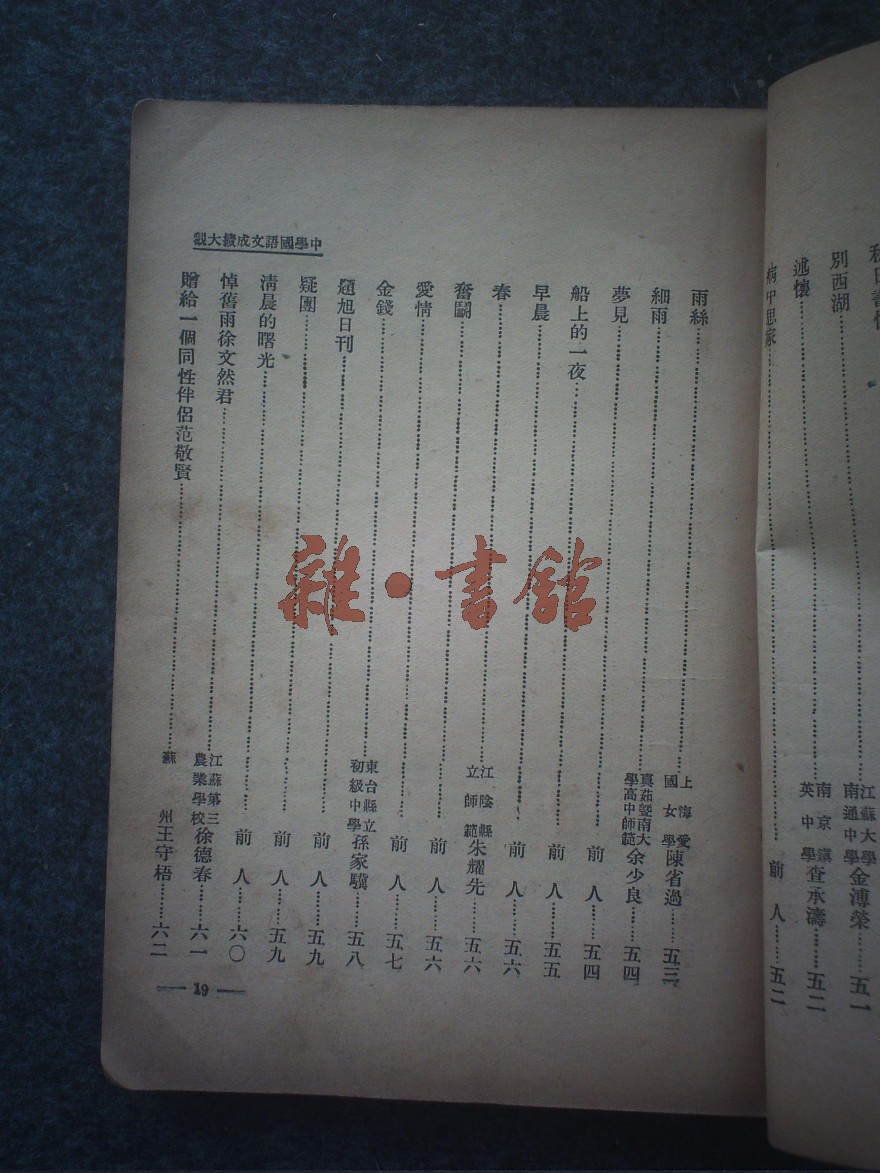 別西湖
江蘇大學南通中學金溥榮……五一
述懷
南京鎮英中學查承濤……五二
病中思家……前人……五二
中學國語文成績大觀
雨絲……上海愛國女學陳省過……五三
細雨……真茹暨南大學高中師範余少良……五四
夢見……前人……五四
船上的一夜……前人……五五
早晨……前人……五六
春……江陰縣立師範朱耀先……五六
奮鬭……前人……五六
愛情……前人……五七
金錢……東台縣立初級中學孫家驥……五八
題旭日刊……前人……五九
疑團……前人……五九
淸晨的曙光……前人……六〇
悼舊雨徐文然君……江蘇第三農業學校徐德春……六一
贈給一個同性伴侶范敬賢……蘇州王守梧……六二
19
雜·書館